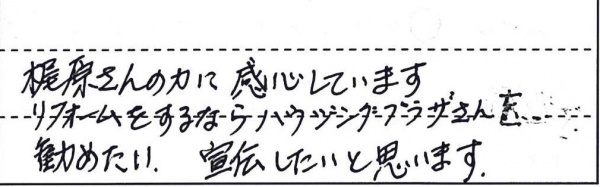 梶原さんの力に 感心しています
リフォームをするならハウジングプラザさんを
勧めたい. 宣伝したいと思います.